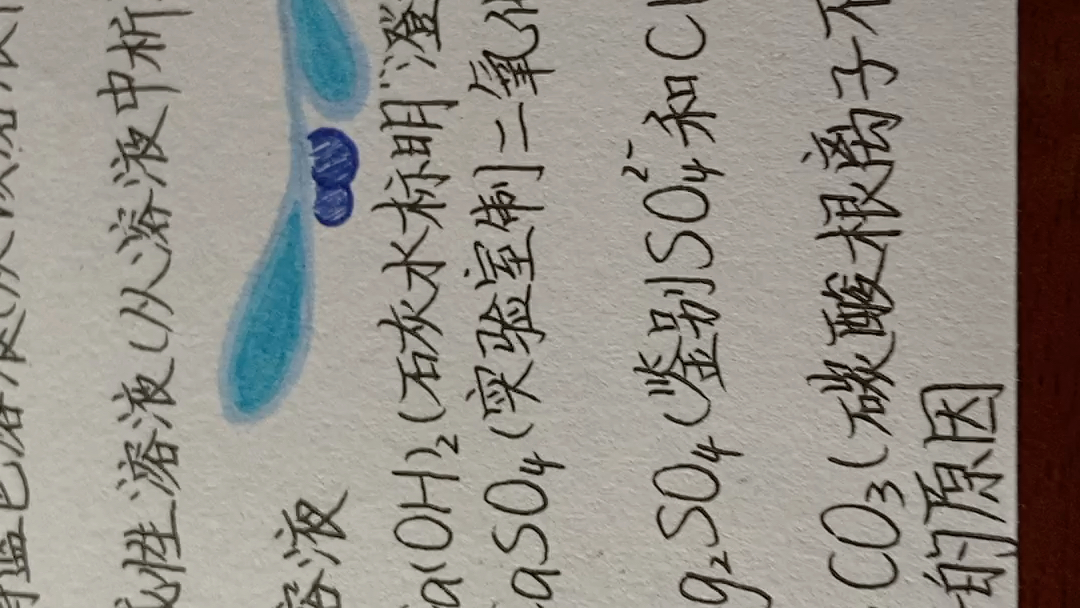 性溶液(从溶液中析
溶液
a(OH)₂(石灰水标明"澄
aSO₄(实验室制二氧化
g₂SO₄(鉴别SO₄²⁻和Cl
CO₃(碳酸根离子不
的原因